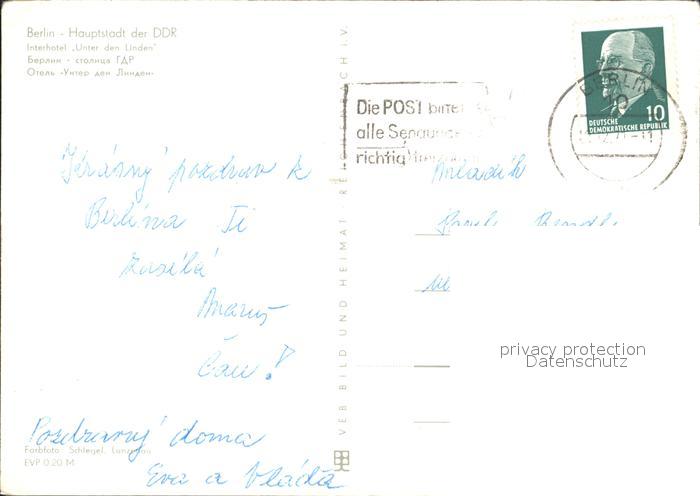 Berlin - Hauptstadt der DDR
Interhotel „Unter den Linden"
Берлин - столица ГДР
Отель «Унтер ден Линден»
Krásný pozdrav k
Berlína Ti
zasílá
Čau!
Pozdravuj doma
Eva a Vláďa
Farbfoto: Schlegel,
EVP 0,20 M
VEB BILD UND HEIMAT REICHENBACH I.V.
Die POST bittet
alle Sendungen
richtig
BERLIN
10
DEUTSCHE
DEMOKRATISCHE REPUBLIK
privacy protection
Datenschutz